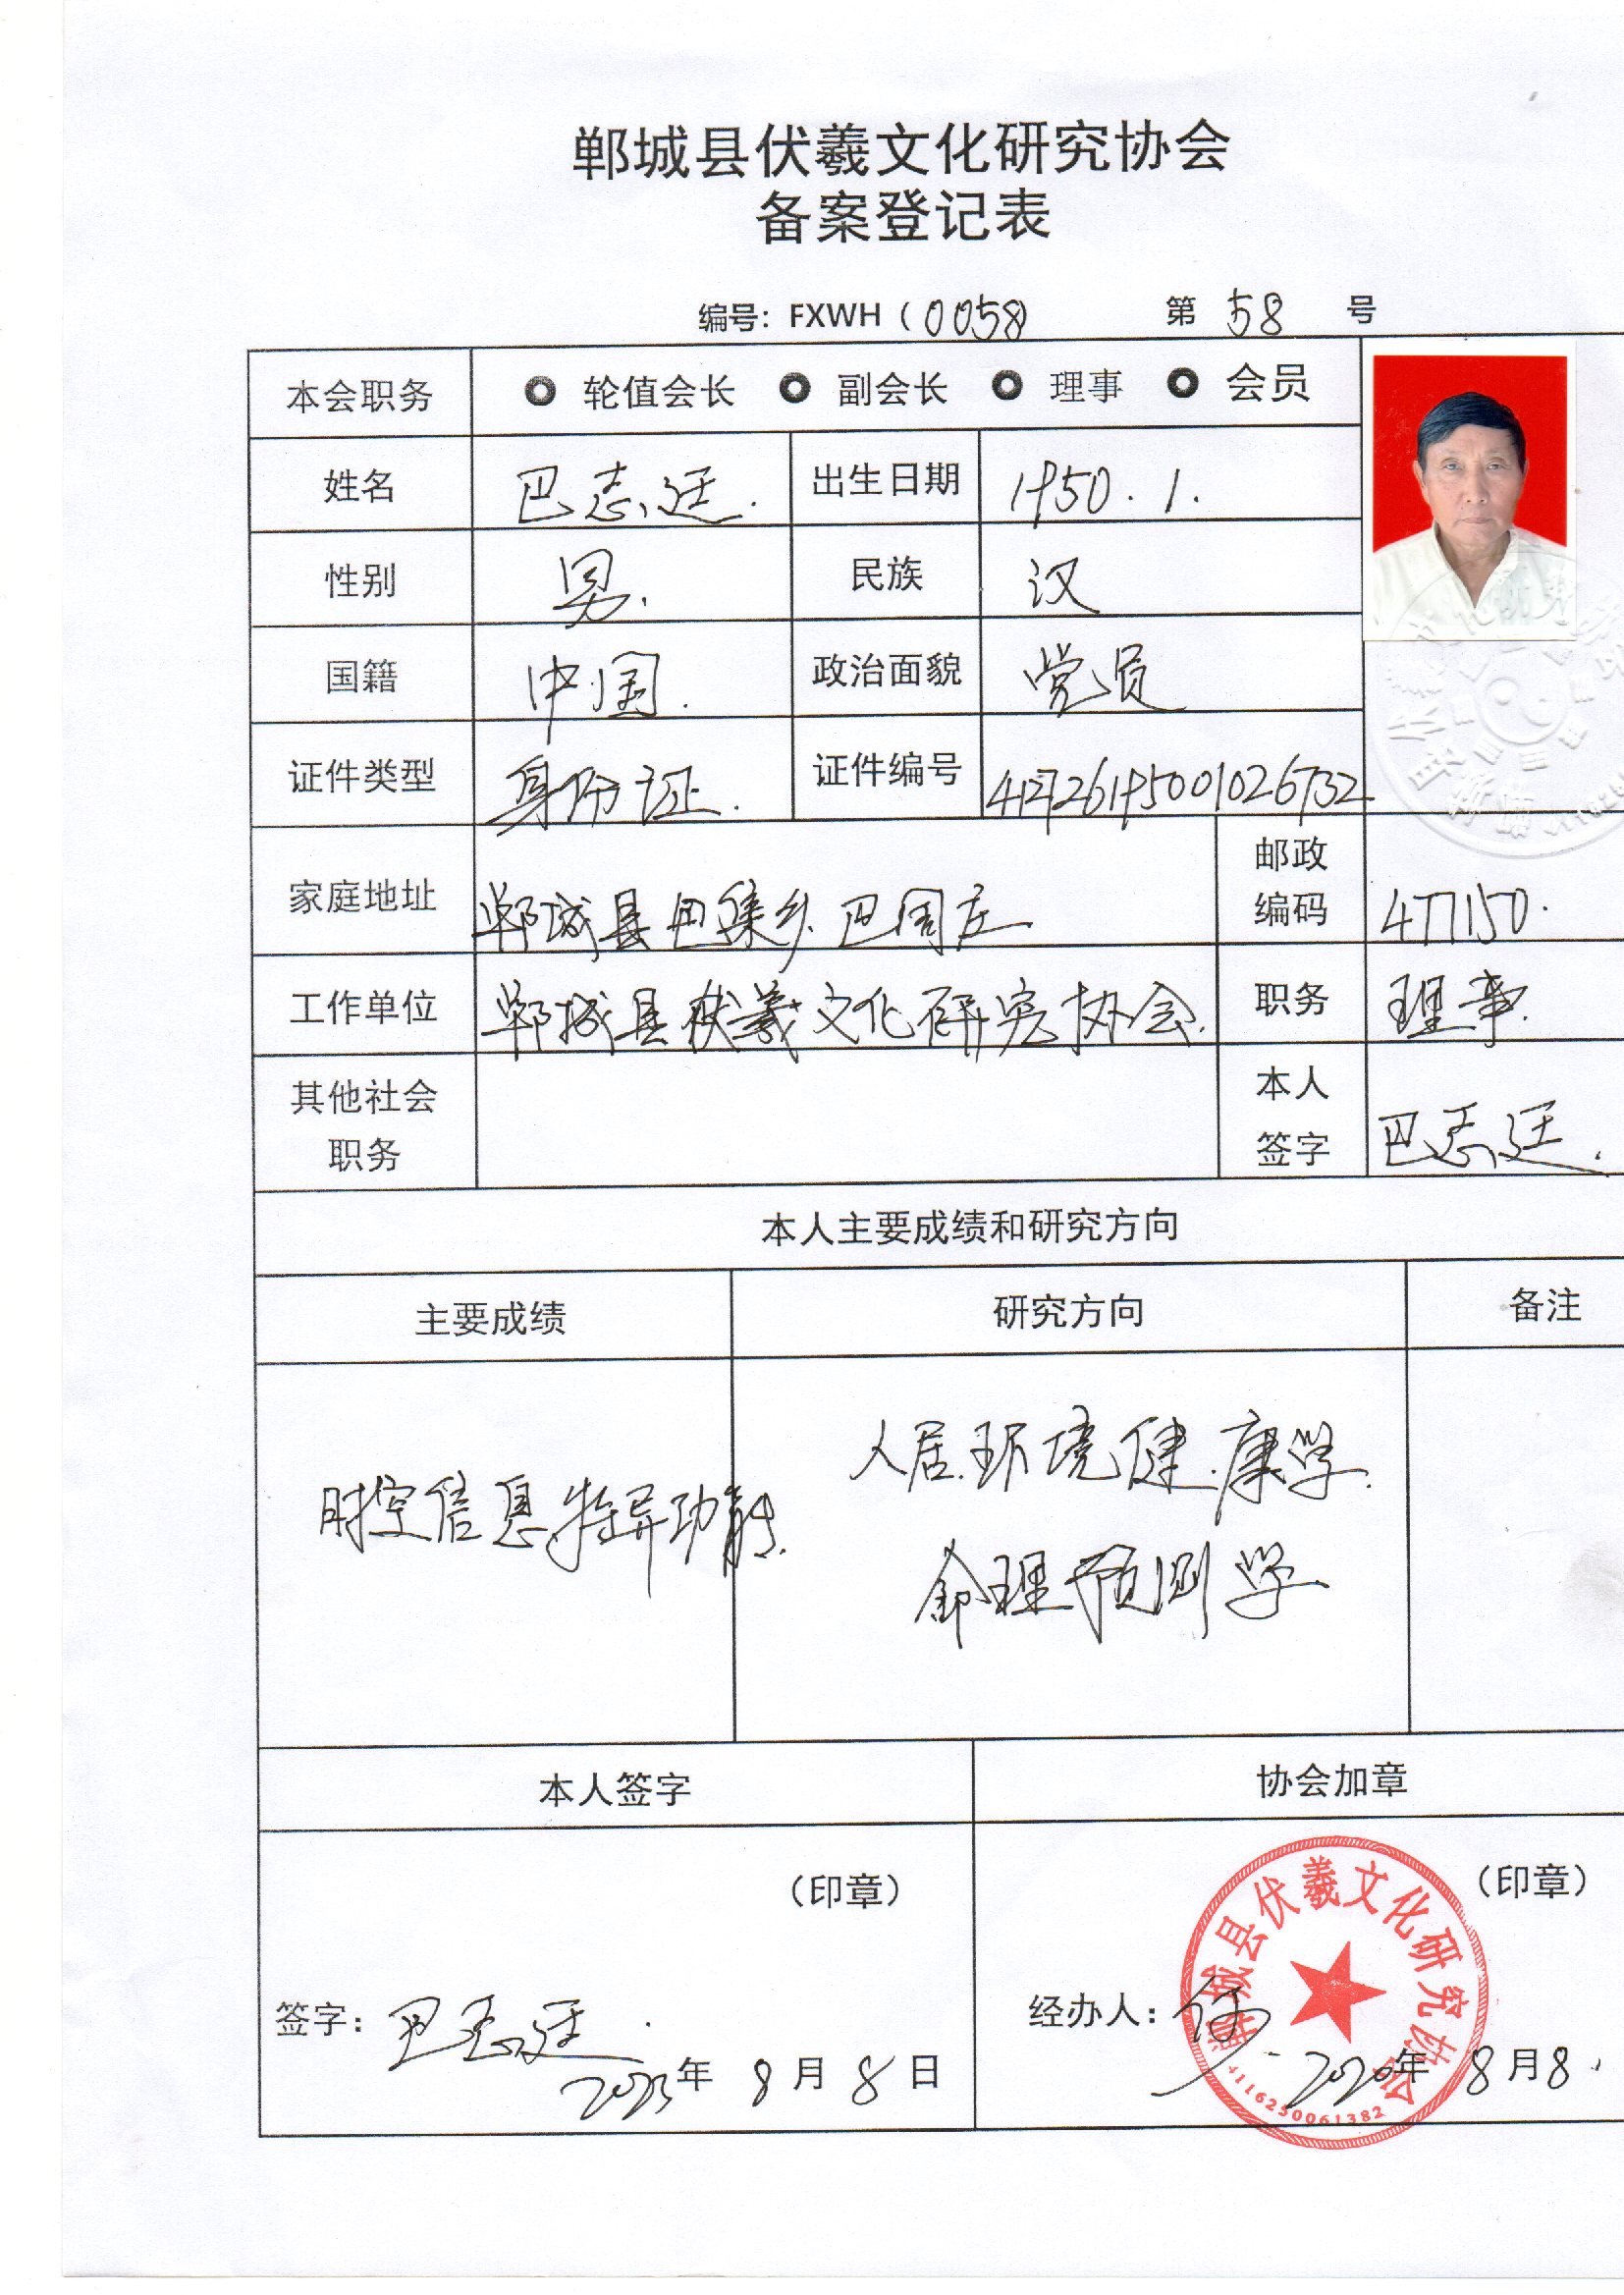 郸城县伏羲文化研究协会
备案登记表
编号：FXWH（0058） 第 58 号
本会职务 轮值会长 副会长 理事 会员
姓名 巴志廷. 出生日期 1950.1.
性别 男. 民族 汉
国籍 中国. 政治面貌 党员
证件类型 身份证. 证件编号 412726195001026732
家庭地址 郸城县巴集乡.巴周庄 邮政编码 477150.
工作单位 郸城县伏羲文化研究协会. 职务 理事.
其他社会职务 本人签字 巴志廷.
本人主要成绩和研究方向
主要成绩 研究方向 备注
人居环境健康学.
时空信息特异功能.
命理预测学
本人签字 协会加章
（印章） （印章）
郸城县伏羲文化研究协会
签字：巴志廷. 经办人：
年 8 月 8 日 2020年 8月8.
4116250061382